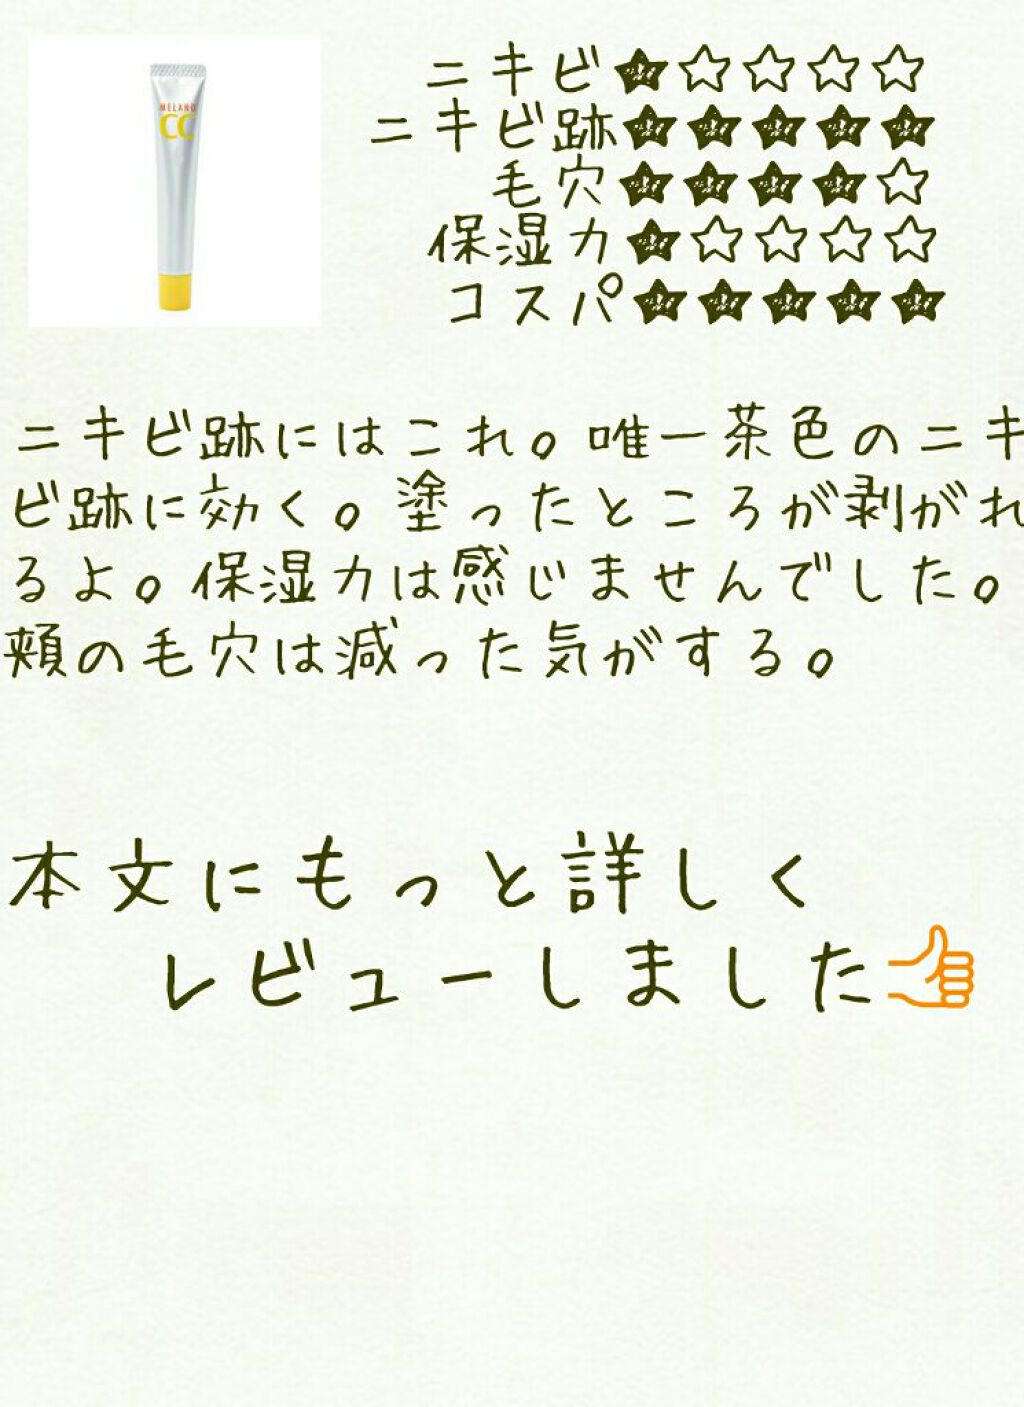 MELANO
CC
ニキビ★☆☆☆☆
ニキビ跡★★★★★
毛穴★★★★☆
保湿力★☆☆☆☆
コスパ★★★★★
ニキビ跡にはこれ。唯一茶色のニキ
ビ跡に効く。塗ったところが剥がれ
るよ。保湿力は感じませんでした。
頬の毛穴は減った気がする。
本文にもっと詳しく
レビューしました👍